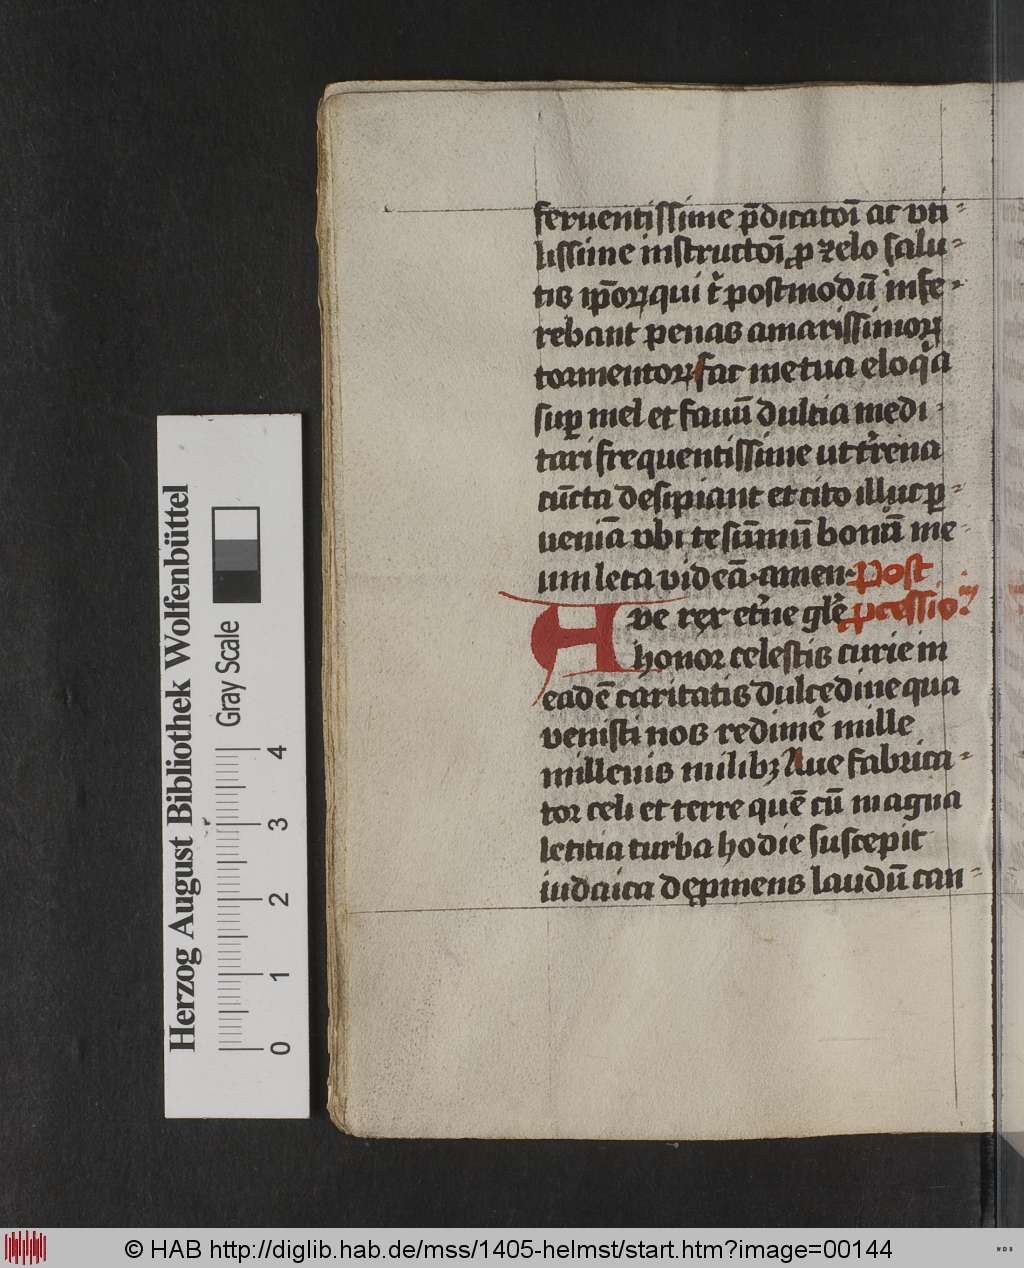 feruentissime p̄dicatoī ac vti-
lissime instructoī ꝓ zelo salu-
tis ip̄oꝝ qui t͛ postmodū infe-
rebant penas amarissimoꝝ
tormentoꝝ fac me tua eloq̄a
suꝑ mel et fauū dulcia medi-
tari frequentissime ut t͛rena
cūcta desipiant et cito illuc ꝑ-
ueniā vbi te sūmū bonū me-
um leta videā· amen· Post
Ave rex et͛ne gl͛e ꝓcessio͛ꝫ
honor celestis curie in
eadē caritatis dulcedine qua
venisti nos redim͛e mille
millenis milibꝫ Aue fabrica-
tor celi et terre quē cū magna
letitia turba hodie suscepit
iudaica deꝓmens laudū can-
Herzog August Bibliothek Wolfenbüttel
Gray Scale
0 1 2 3 4
© HAB http://diglib.hab.de/mss/1405-helmst/start.htm?image=00144